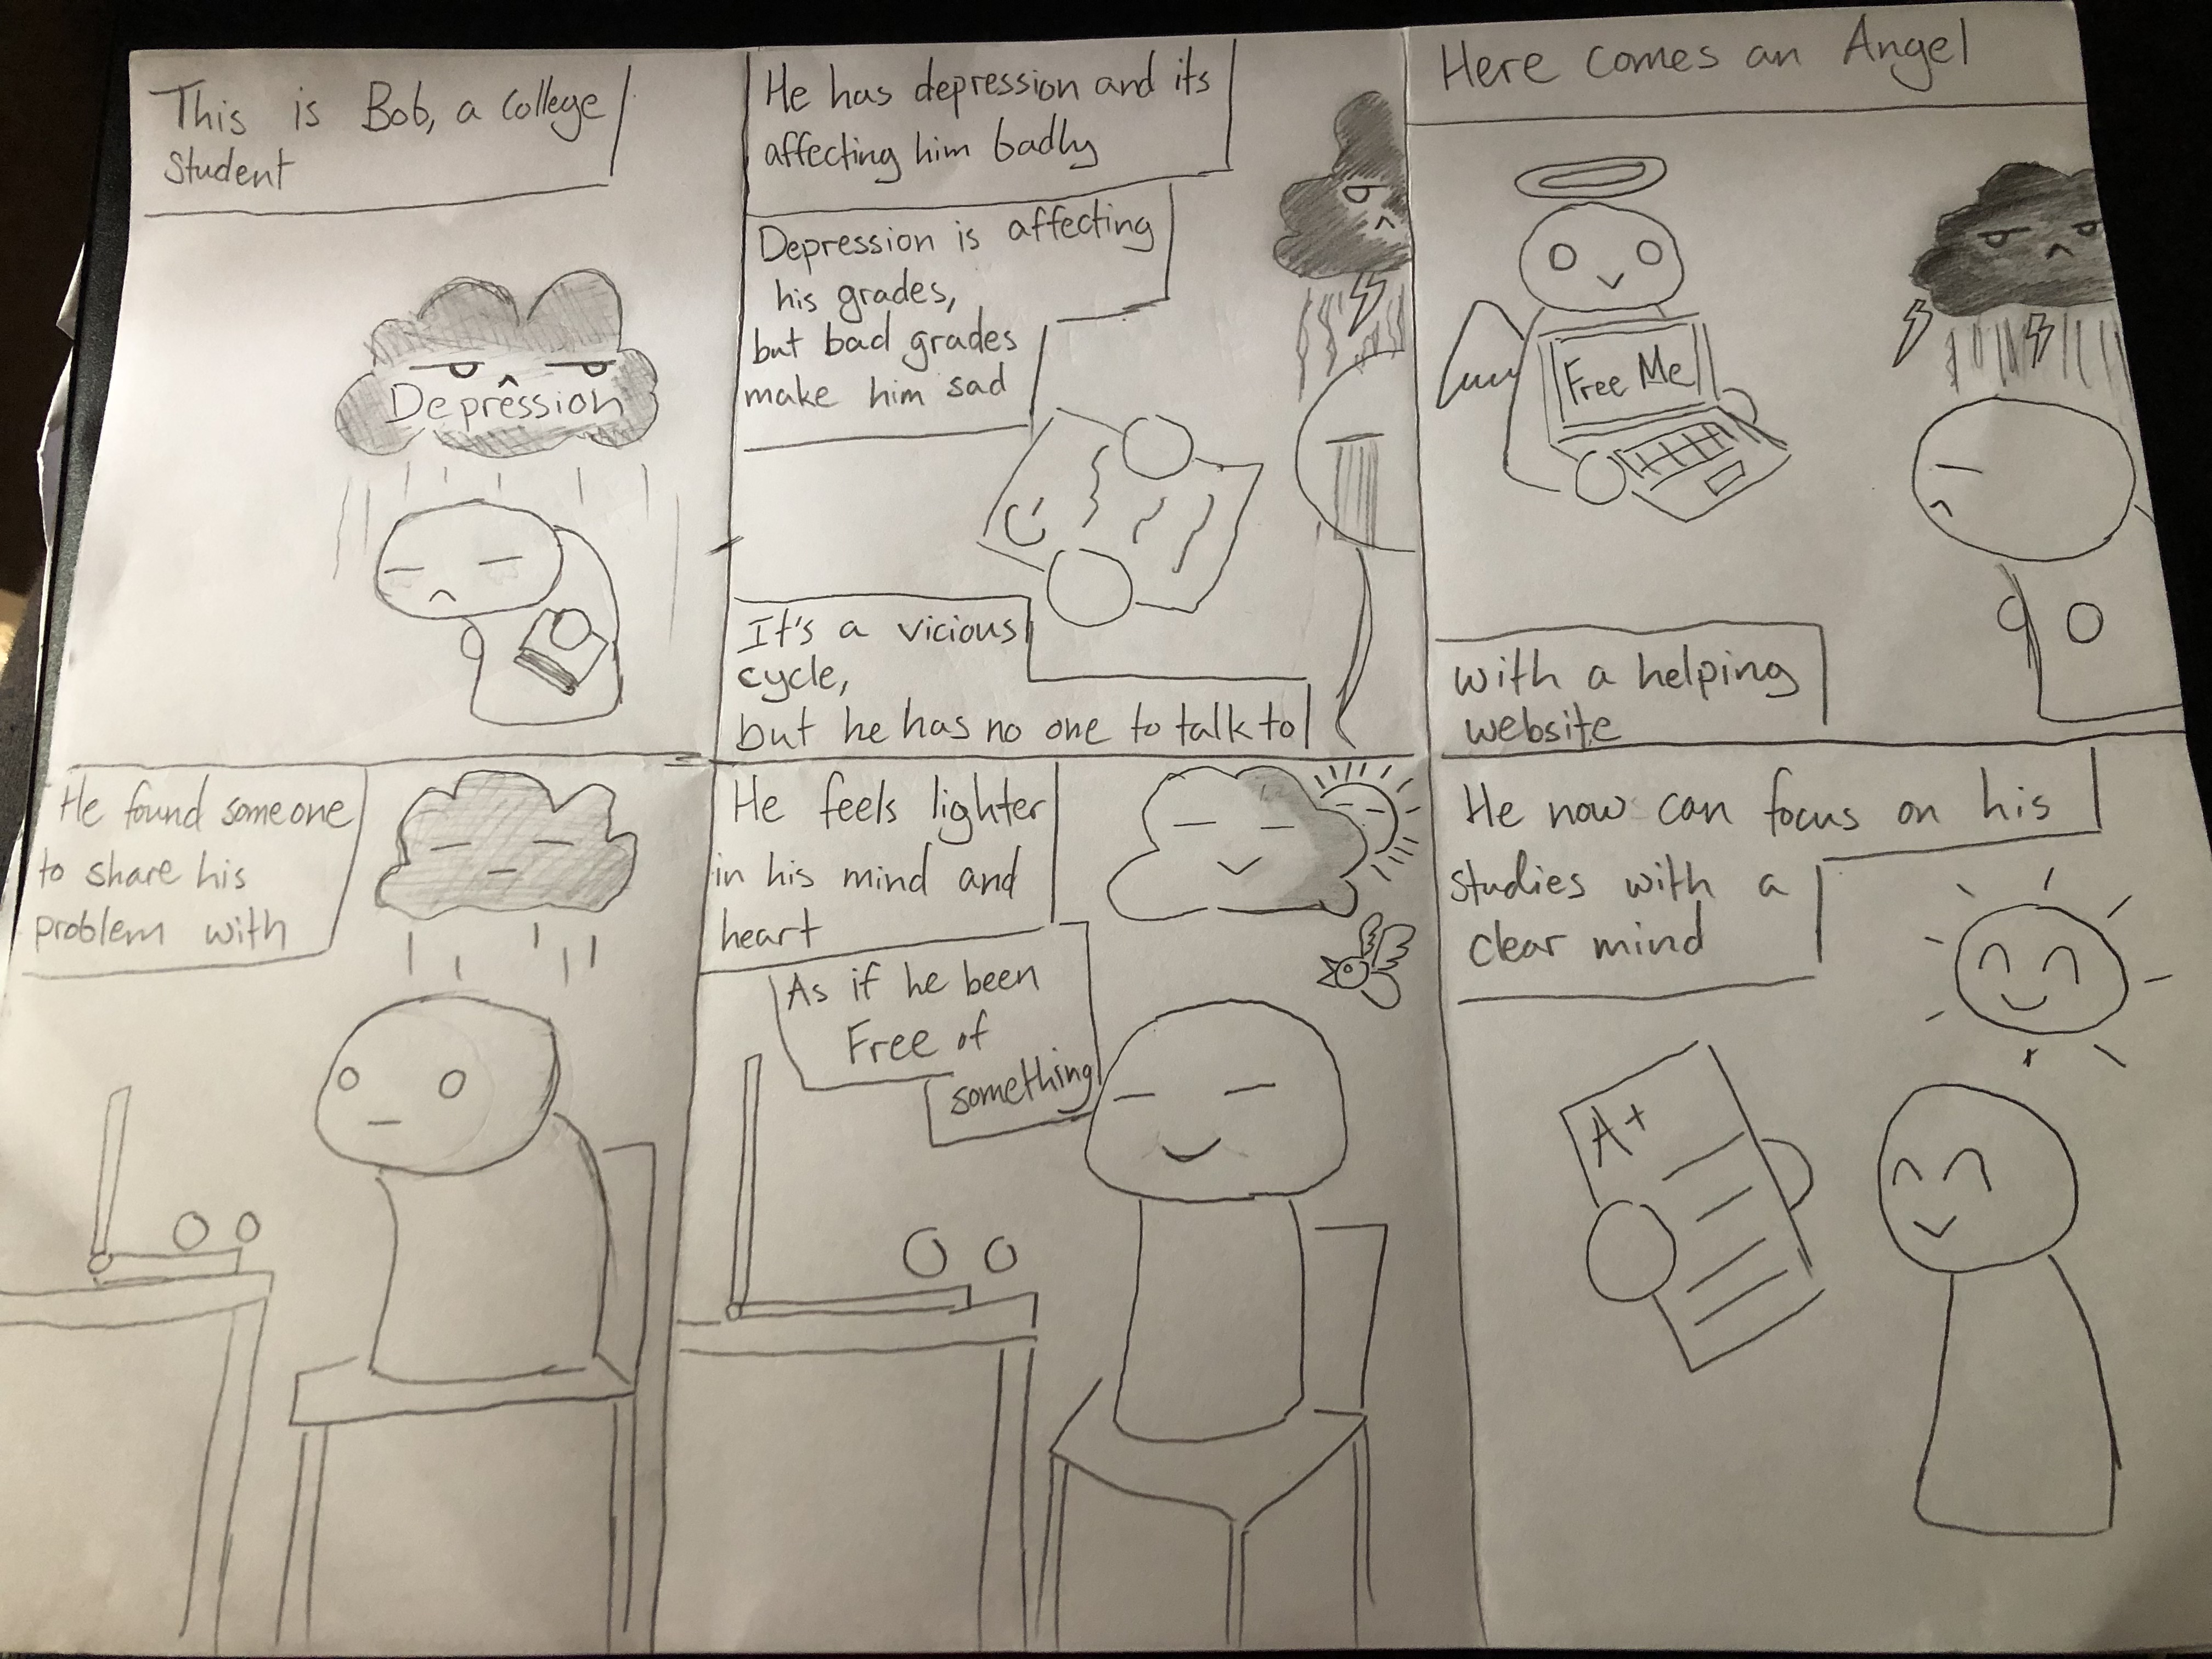 This is Bob, a college
student
Depression
He has depression and its
affecting him badly
Depression is affecting
his grades,
but bad grades
make him sad
C
It's a vicious
cycle,
but he has no one to talk to
Here comes an Angel
Free Me
with a helping
website
He found someone
to share his
problem with
He feels lighter
in his mind and
heart
As if he been
Free of
something
He now can focus on his
studies with a
clear mind
A+